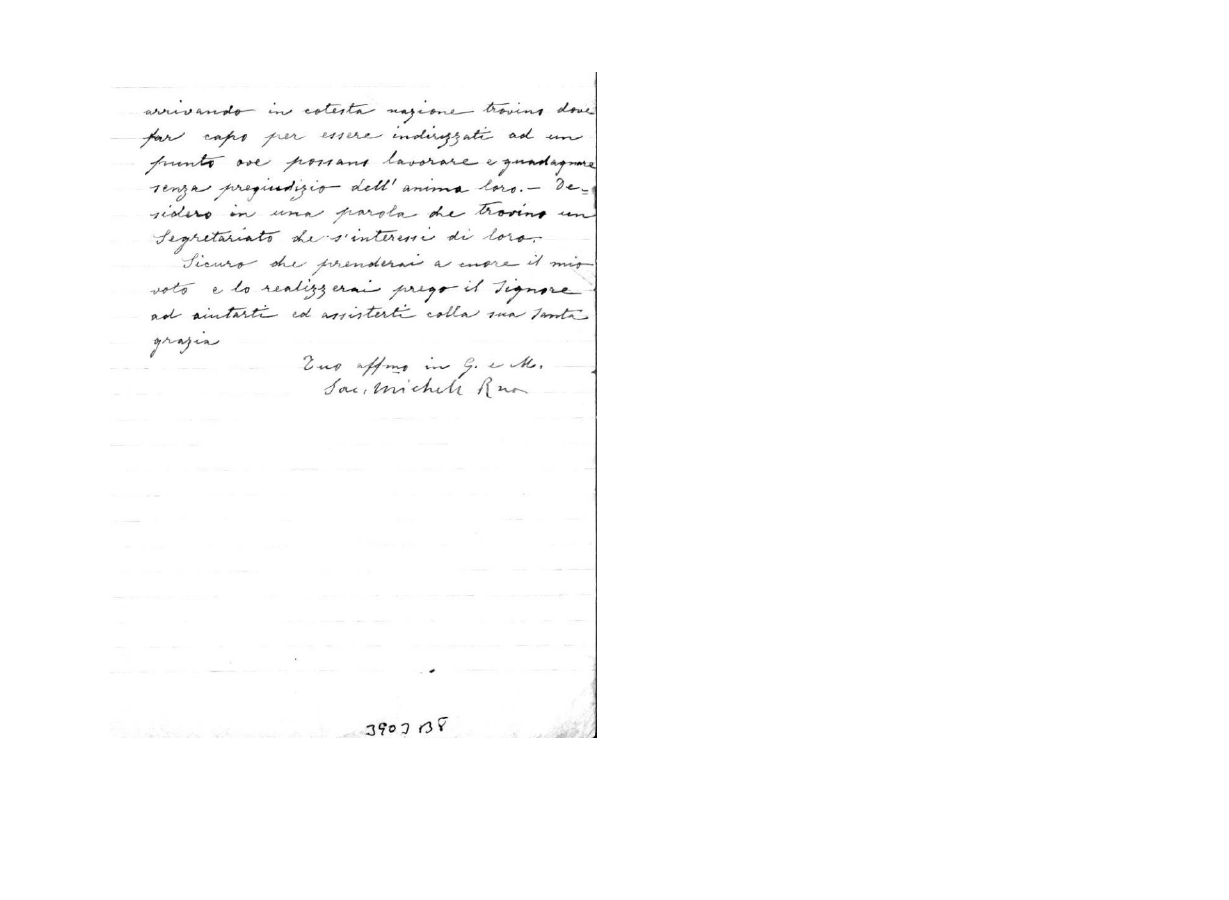 arrivando in cotesta nazione trovino dove
far capo per essere indirizzati ad un
punto ove possano lavorare e guadagnare
senza pregiudizio dell'anima loro. – De=
sidero in una parola che trovino un
Segretariato che s'interessi di loro.
Sicuro che prenderai a cuore il mio
voto e lo realizzerai prego il Signore
ad aiutarti ed assisterti colla sua santa
grazia
Tuo affmo in G. e M.
Sac. Michele Rua
3903 B8